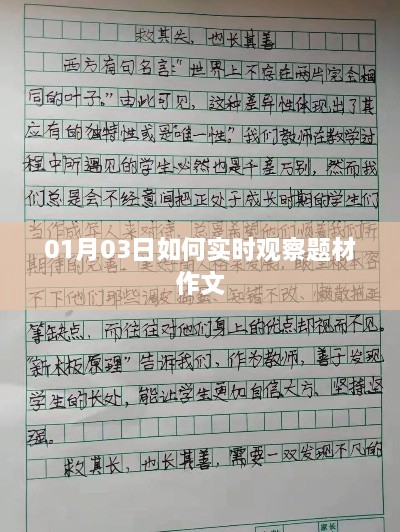 救其失，也长其善
西方有句名言："世界上不存在两片完全相
同的叶子。"由此可见，这种差异性体现出了其
应有的独特性或是"唯一性"。我们教师在教学过
程中所遇见的学生必然也是千差万别，然而我
们总是会不经意间把正处于成长时期的学生们
01月03日如何实时观察题材
作文
不下他们那些调皮捣蛋、知错不改、懒散拖延
等缺点，而往往对他们身上的优点却视而不见。
"新木板原理"告诉我们，作为教师，善于发现
学生的长处，能让学生更加自信大方、坚持坚
强。
救其长，也长其善，需要一双发现不凡的